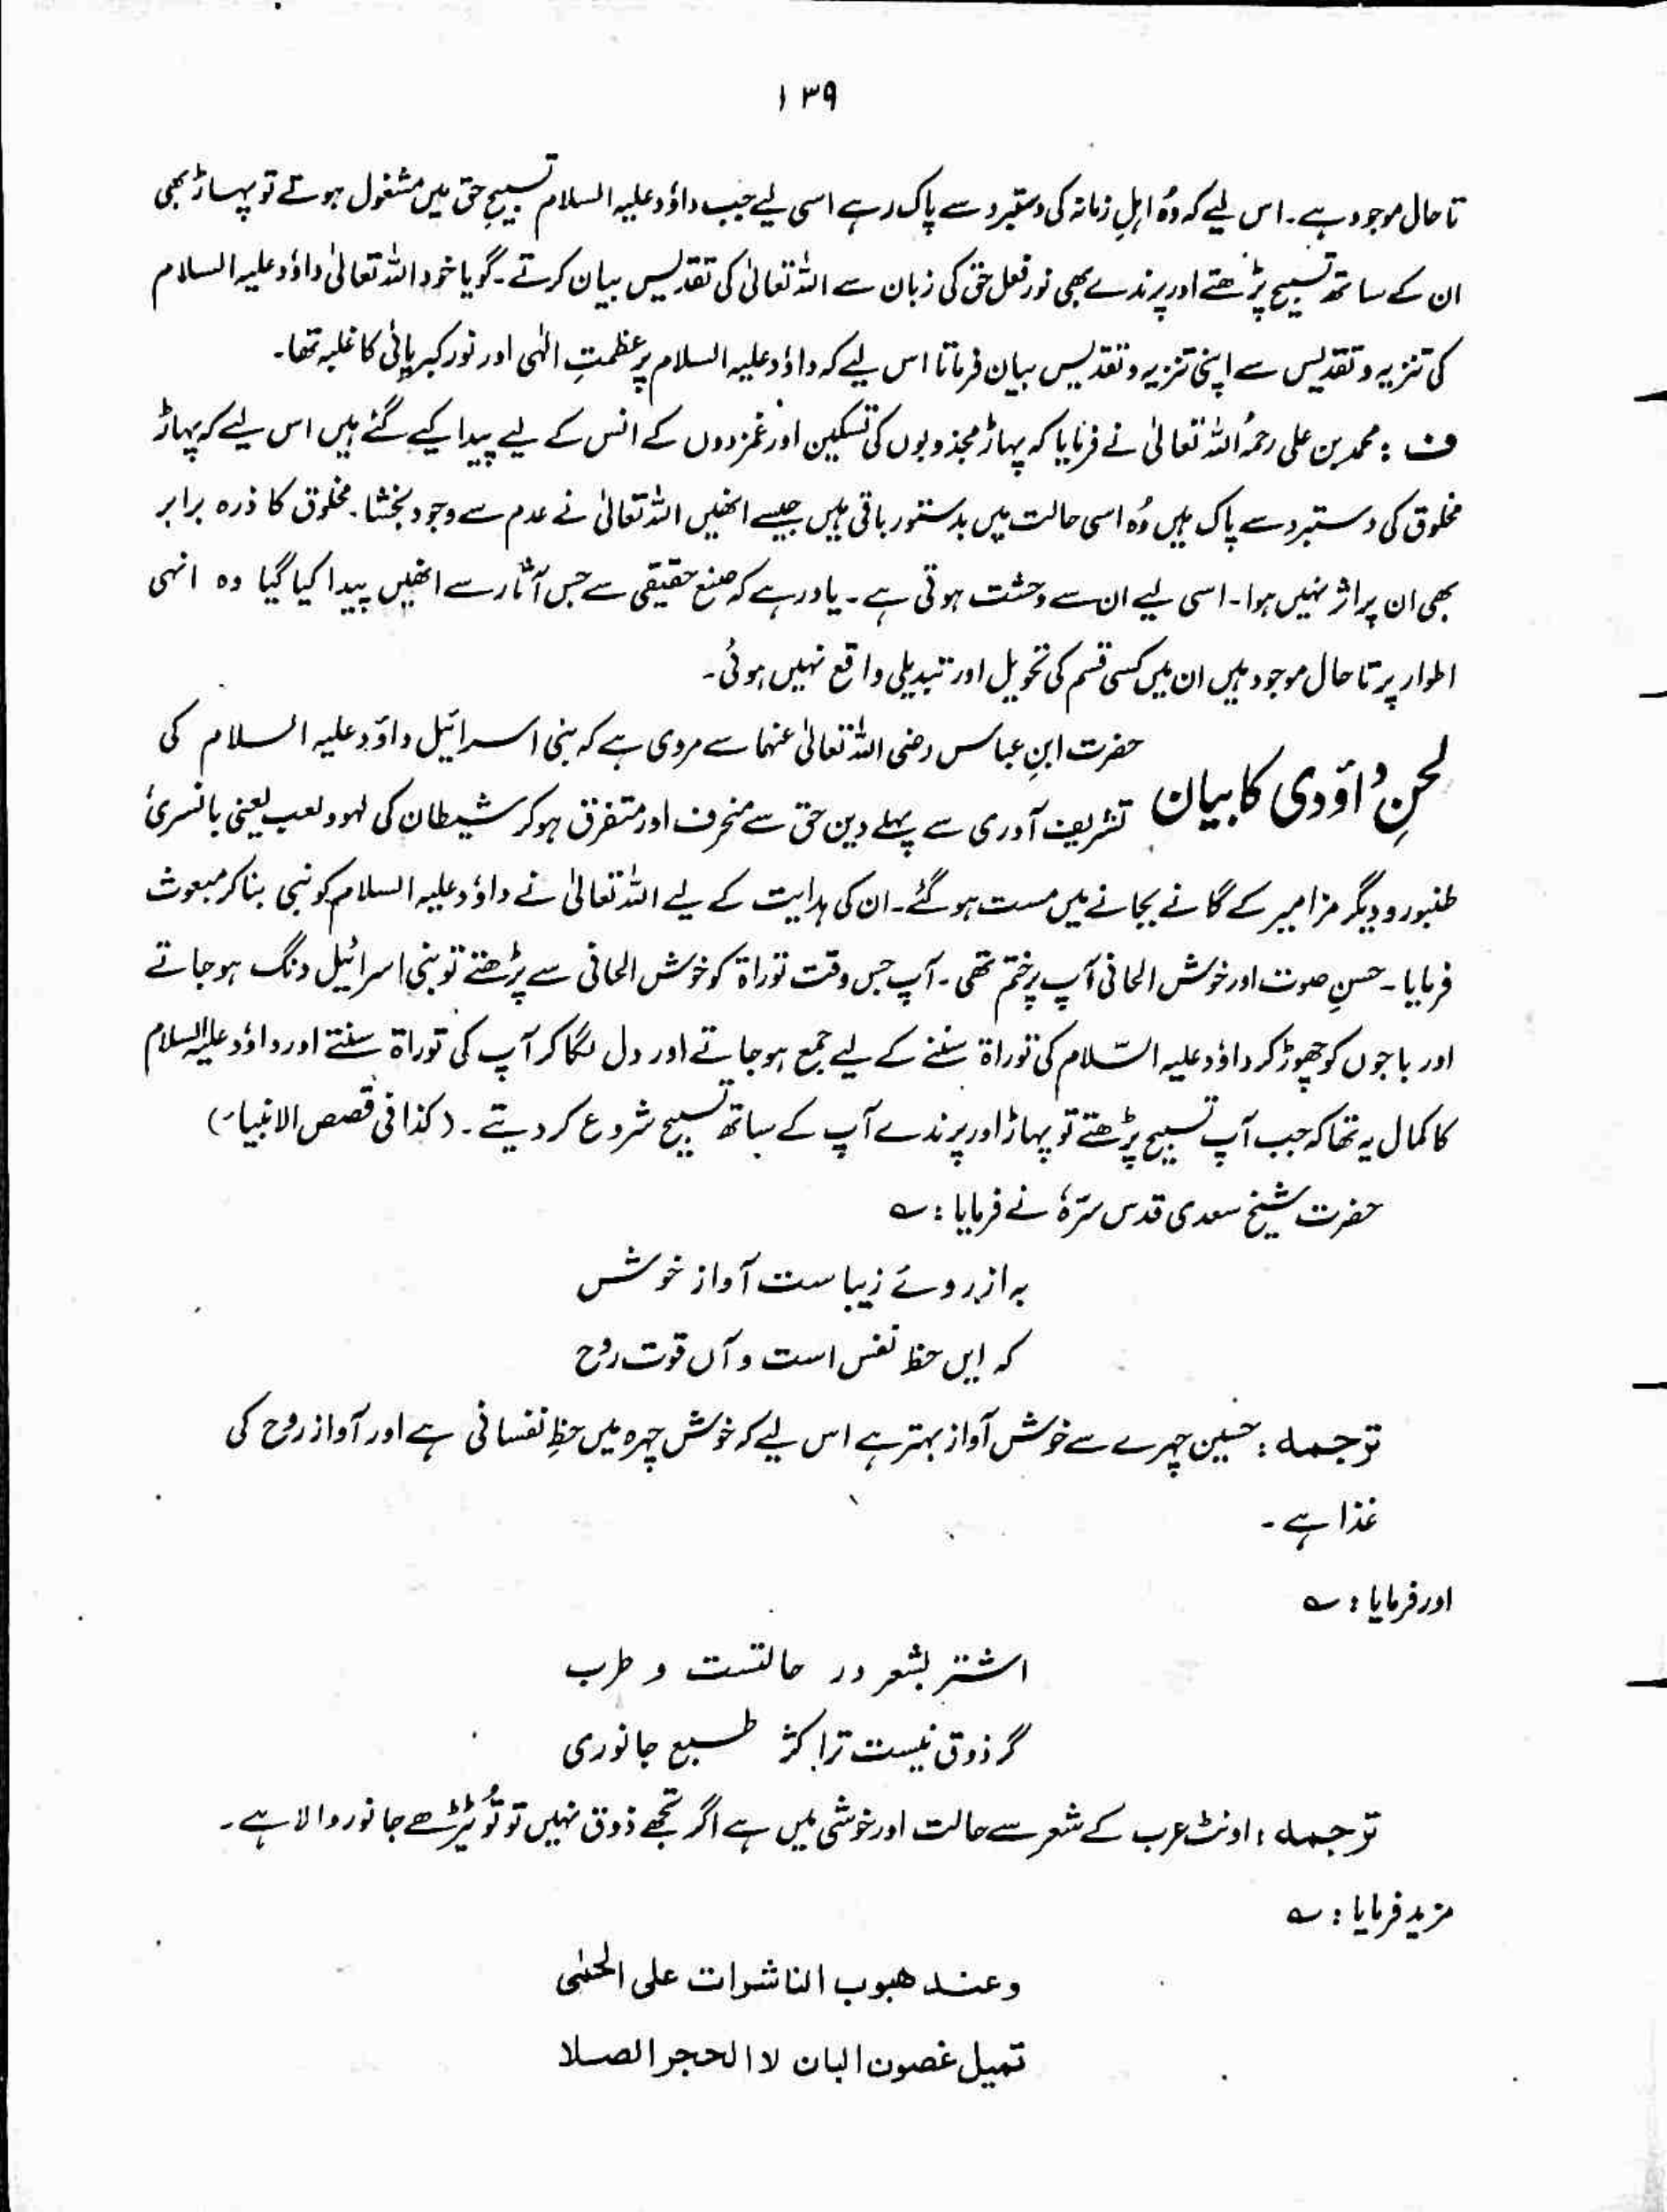 ۱۳۹
تا حال موجود ہے۔ اس لیے کہ وُہ اہلِ زمانہ کی دستبرد سے پاک رہے اسی لیے جب داؤد علیہ السلام تسبیحِ حق میں مشغول ہوتے تو پہاڑ بھی
ان کے ساتھ تسبیح پڑھتے اور پرندے بھی نورِ فعل حق کی زبان سے اللہ تعالیٰ کی تقدیس بیان کرتے۔ گویا خود اللہ تعالیٰ داؤد علیہ السلام
کی تنزیہ و تقدیس سے اپنی تنزیہ و تقدیس بیان فرماتا اس لیے کہ داؤد علیہ السلام پر عظمتِ الٰہی اور نور کبریائی کا غلبہ تھا۔
ف : محمد بن علی رحمہُ اللہ تعالیٰ نے فرمایا کہ پہاڑ مجذوبوں کی تسکین اور غمزدوں کے انس کے لیے پیدا کیے گئے ہیں اس لیے کہ پہاڑ
مخلوق کی دستبرد سے پاک ہیں وُہ اسی حالت میں بدستور باقی ہیں جیسے انھیں اللہ تعالیٰ نے عدم سے وجود بخشا۔ مخلوق کا ذرہ برابر
بھی ان پر اثر نہیں ہوا۔ اسی لیے ان سے وحشت ہوتی ہے۔ یاد رہے کہ صنعِ حقیقی سے جس آثار سے انھیں پیدا کیا گیا وہ انہی
اطوار پر تا حال موجود ہیں ان میں کسی قسم کی تحویل اور تبدیلی واقع نہیں ہوئی۔
لحنِ داؤدی کا بیان حضرت ابنِ عباس رضی اللہ تعالیٰ عنہما سے مروی ہے کہ بنی اسرائیل داؤد علیہ السلام کی
تشریف آوری سے پہلے دین حق سے منحرف اور متفرق ہو کر شیطان کی لہو و لعب یعنی بانسری
طنبور و دیگر مزامیر کے گانے بجانے میں مست ہو گئے۔ ان کی ہدایت کے لیے اللہ تعالیٰ نے داؤد علیہ السلام کو نبی بنا کر مبعوث
فرمایا۔ حسنِ صوت اور خوش الحانی آپ پر ختم تھی۔ آپ جس وقت توراۃ کو خوش الحانی سے پڑھتے تو بنی اسرائیل دنگ ہو جاتے
اور باجوں کو چھوڑ کر داؤد علیہ السّلام کی توراۃ سننے کے لیے جمع ہو جاتے اور دل لگا کر آپ کی توراۃ سنتے اور داؤد علیہ السلام
کا کمال یہ تھا کہ جب آپ تسبیح پڑھتے تو پہاڑ اور پرندے آپ کے ساتھ تسبیح شروع کر دیتے۔ (کذا فی قصص الانبیاء)
حضرت شیخ سعدی قدس سرّہٗ نے فرمایا : ؎
بہ از روئے زیباست آواز خوش
کہ ایں حظ نفس است و آں قوت روح
ترجمہ : حسین چہرے سے خوش آواز بہتر ہے اس لیے کہ خوش چہرہ میں حظِ نفسانی ہے اور آواز روح کی
غذا ہے۔
اور فرمایا : ؎
اشتر بشعر در حالتست و طرب
گر ذوق نیست ترا کژ طبع جانوری
ترجمہ : اونٹ عرب کے شعر سے حالت اور خوشی میں ہے اگر تجھے ذوق نہیں تو تُو ٹیڑھے جانور والا ہے۔
مزید فرمایا : ؎
وعند هبوب الناشرات علی الحمٰی
تمیل غصون البان لا الحجر الصلا